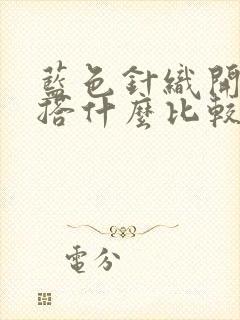 藍色針織開
搭什麼比較
電分